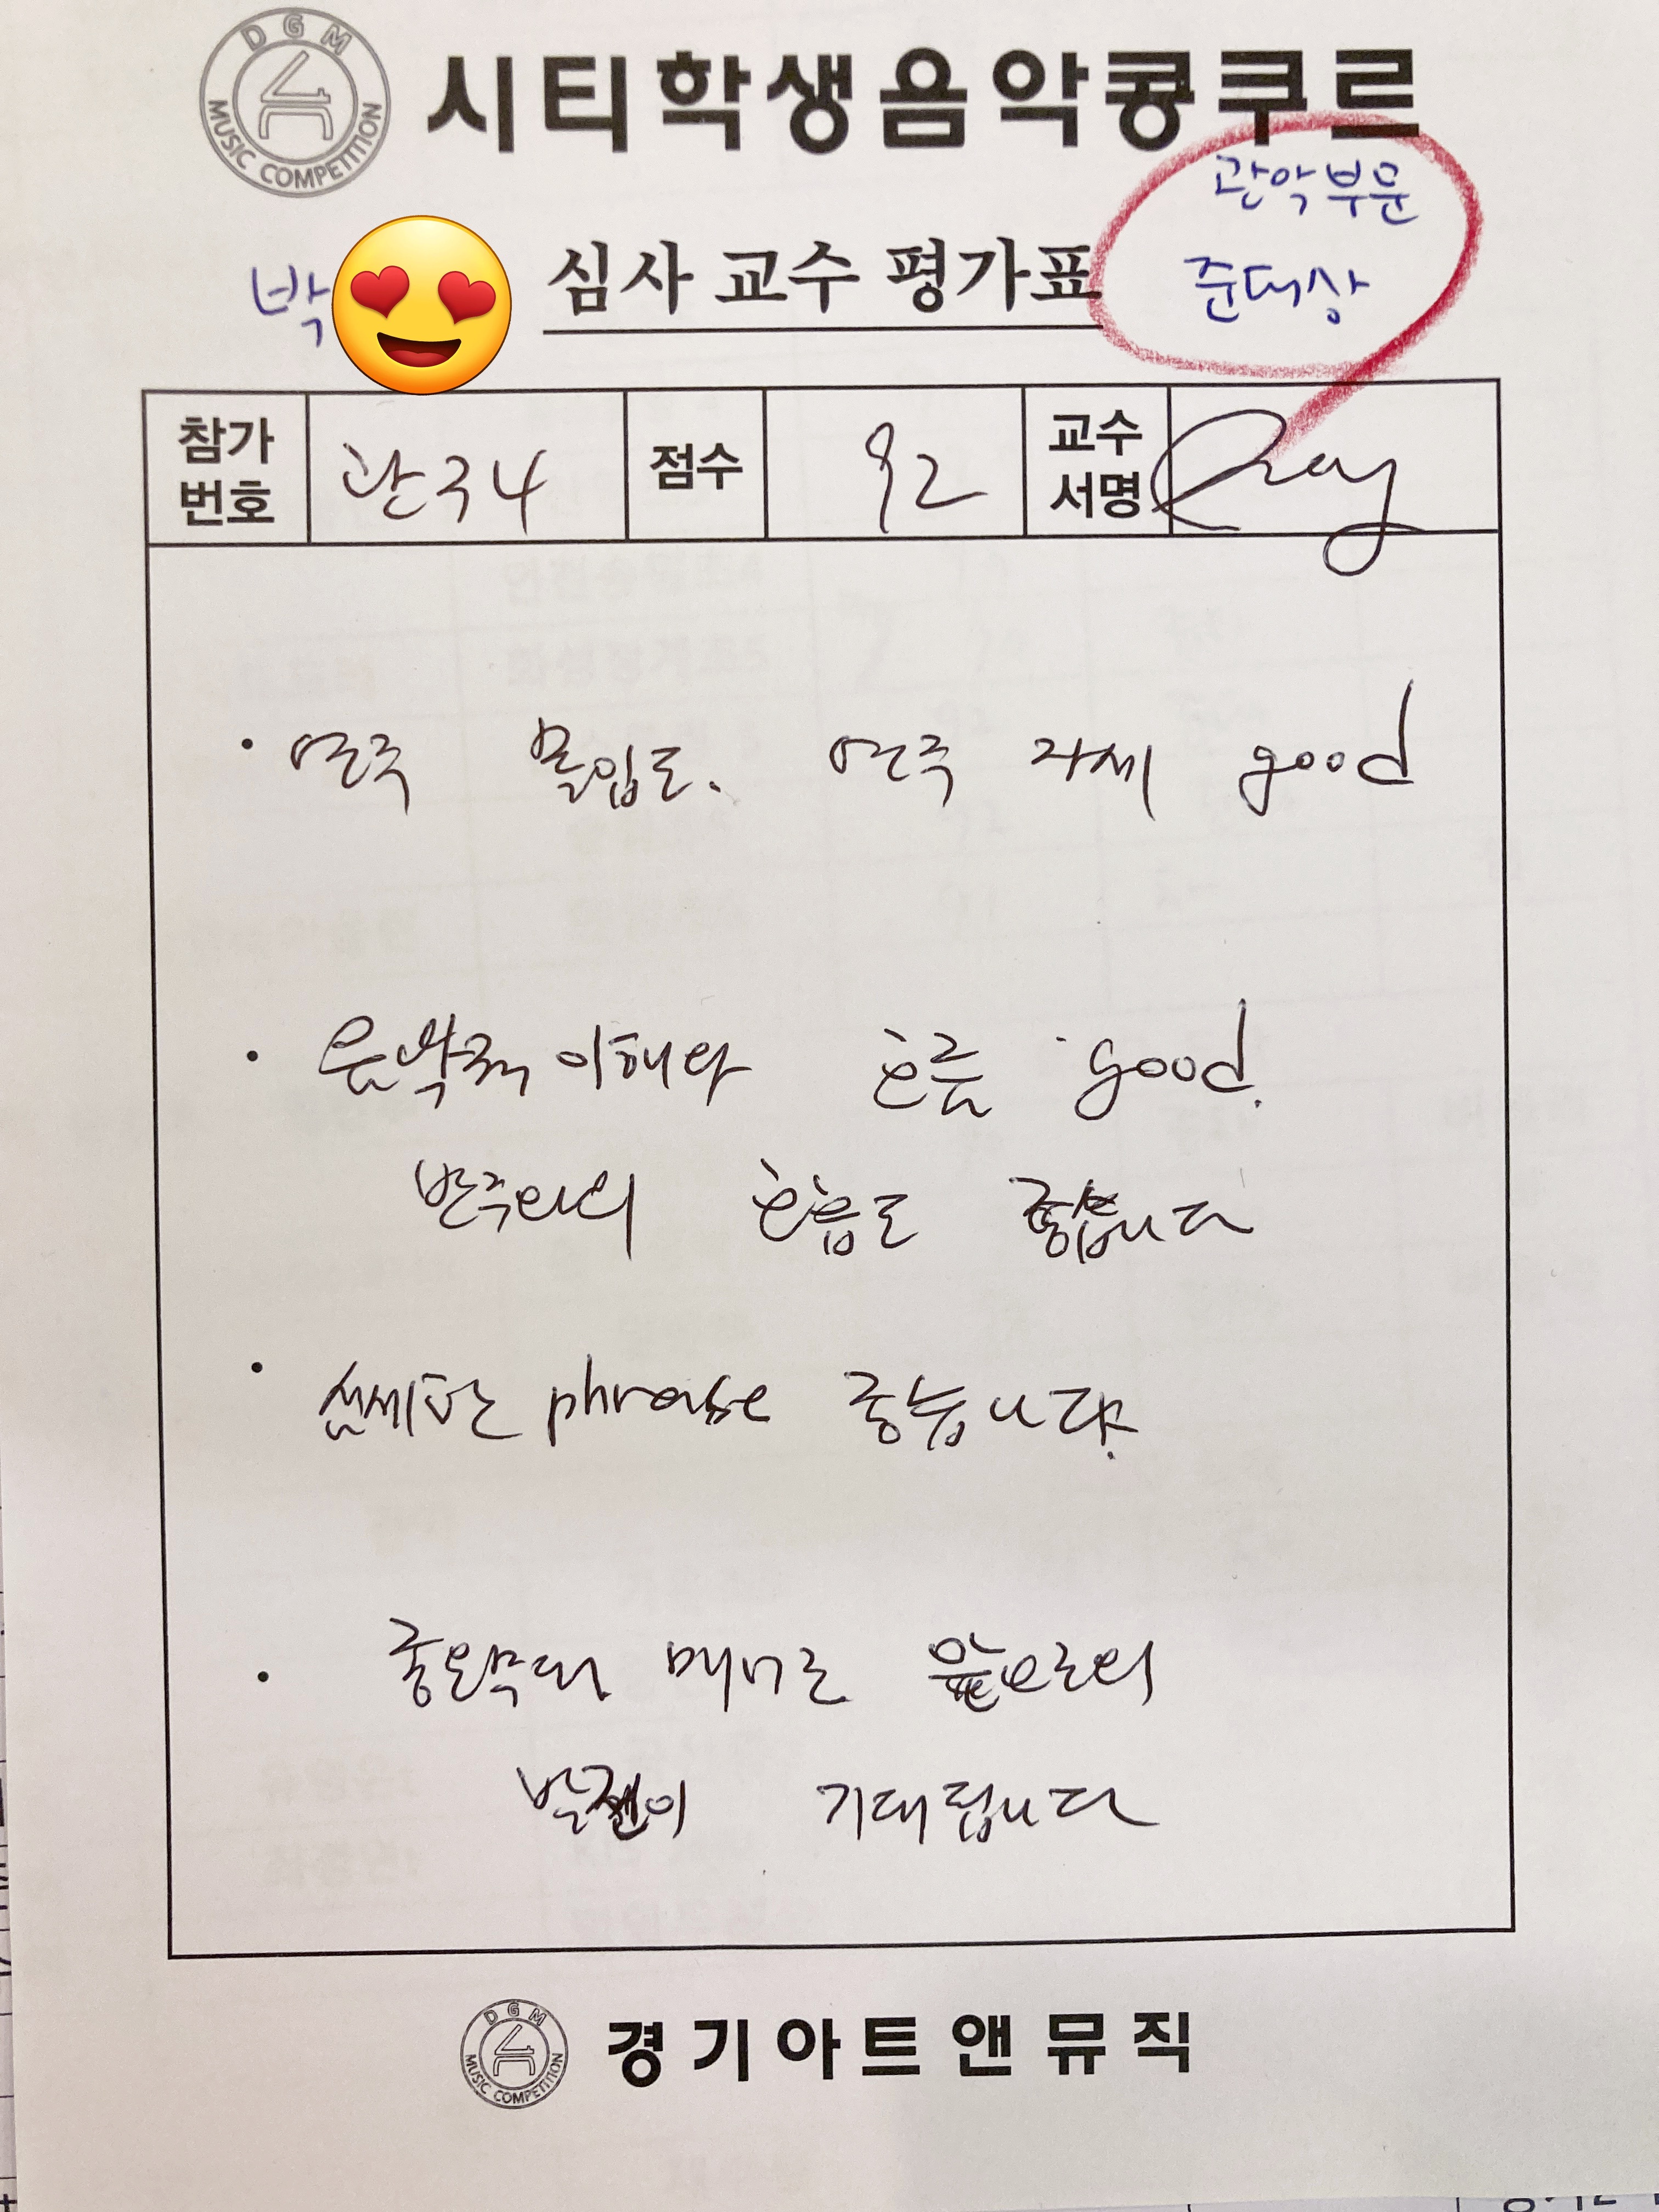 DGM
MUSIC COMPETITION
시티학생음악콩쿠르
관악부문
준대상
박
심사 교수 평가표
참가 번호 관 34 점수 92 교수 서명
· 연주 몰입도. 연주 자세 good
· 음악적 이해와 흐름 good.
반주와의 호흡도 좋습니다
· 섬세한 phrase 좋습니다.
· 매너로 앞으로의
발전이 기대됩니다
DGM
MUSIC COMPETITION
경기아트앤뮤직